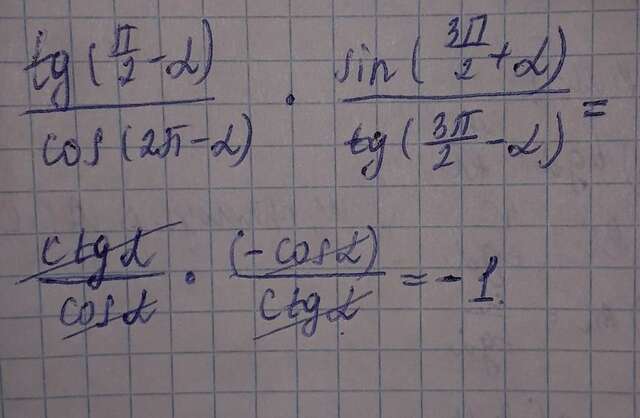 tg(π/2 - α) / cos(2π - α) · sin(3π/2 + α) / tg(3π/2 - α) =
ctgα / cosα · (-cosα) / ctgα = -1.